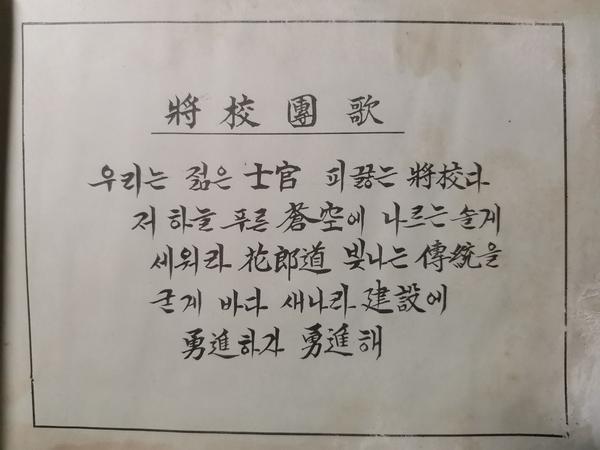 將校團歌
우리는 젊은 士官 피끓는 將校다
저 하늘 푸른 蒼空에 나르는 솔게
세워라 花郎道 빛나는 傳統을
굳게 바다 새나라 建設에
勇進하자 勇進해